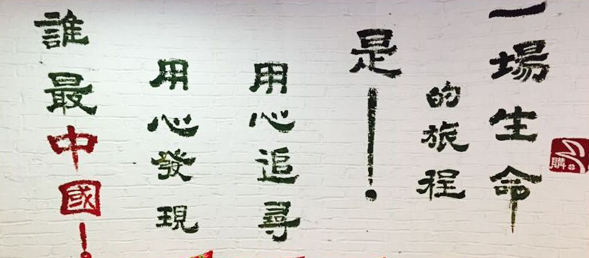 一場生命
的旅程
是！
用心追尋
用心發現
誰最中國！
購